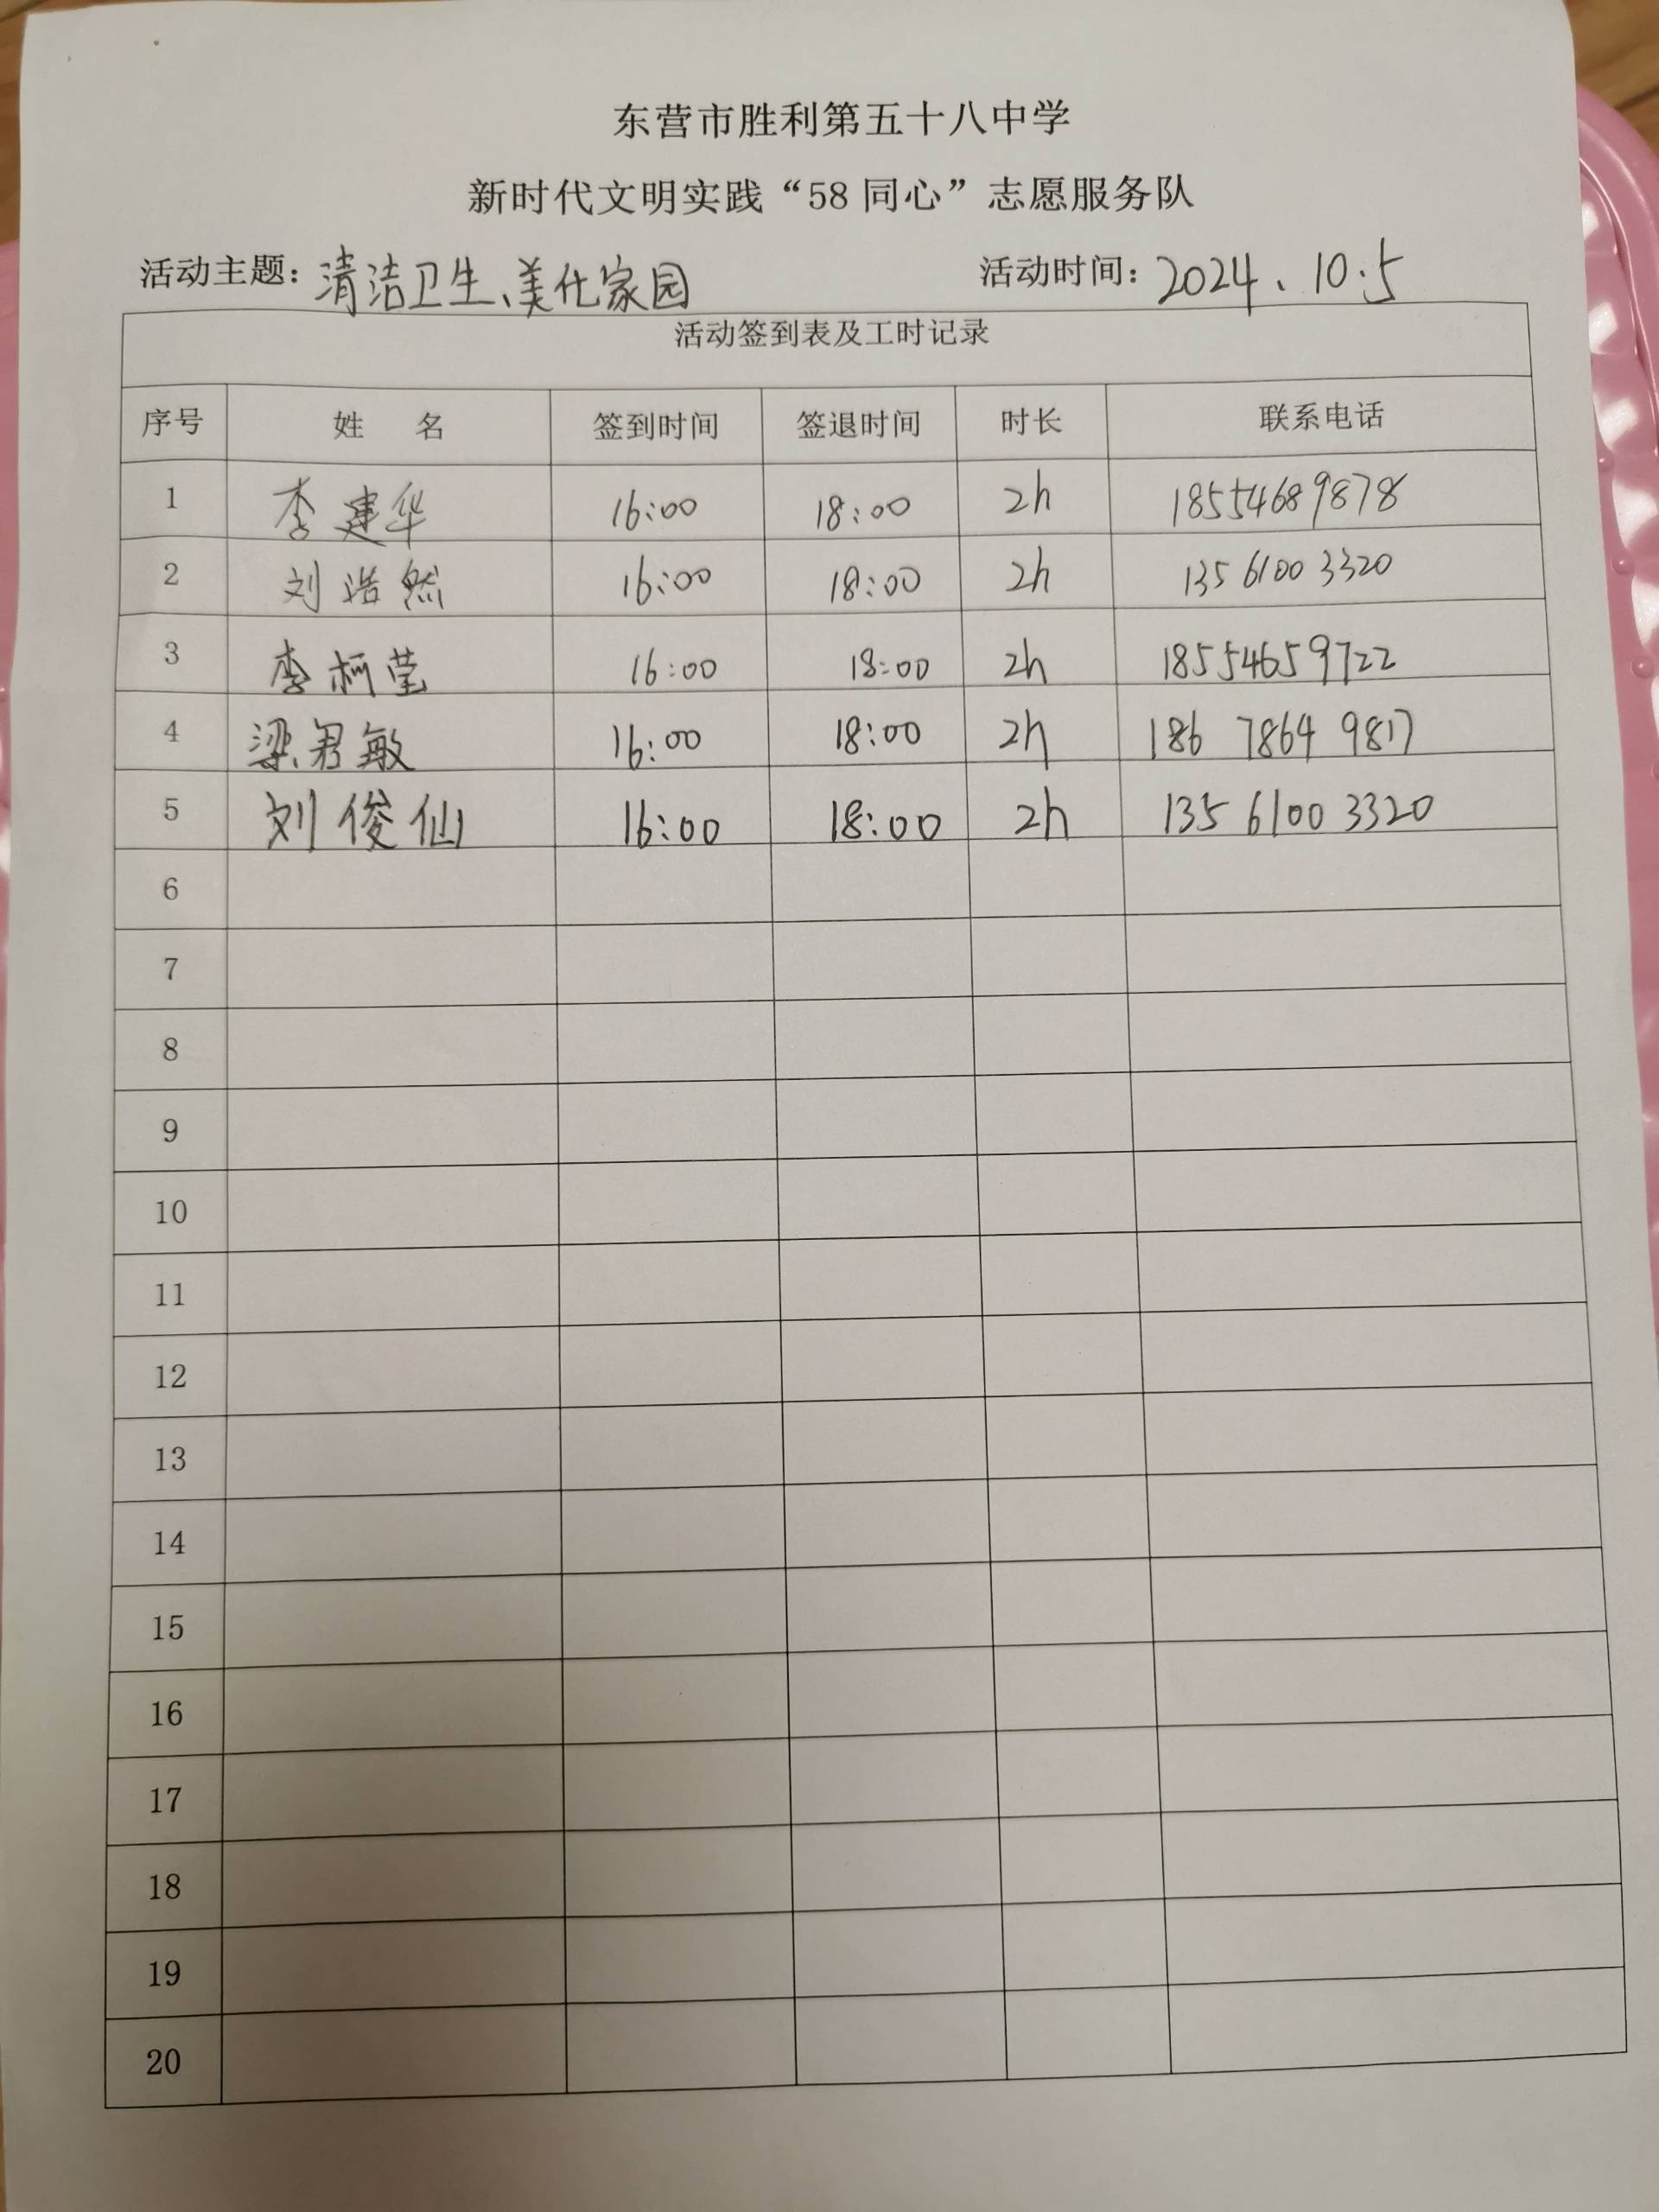 东营市胜利第五十八中学
新时代文明实践“58 同心”志愿服务队
活动主题：清洁卫生、美化家园 活动时间：2024、10.5
活动签到表及工时记录
序号 姓 名 签到时间 签退时间 时长 联系电话
1 李建华 16:00 18:00 2h 18554689878
2 刘浩然 16:00 18:00 2h 135 6100 3320
3 李柯莹 16:00 18:00 2h 18554659722
4 梁君敏 16:00 18:00 2h 186 7864 9817
5 刘俊仙 16:00 18:00 2h 135 6100 3320
6
7
8
9
10
11
12
13
14
15
16
17
18
19
20